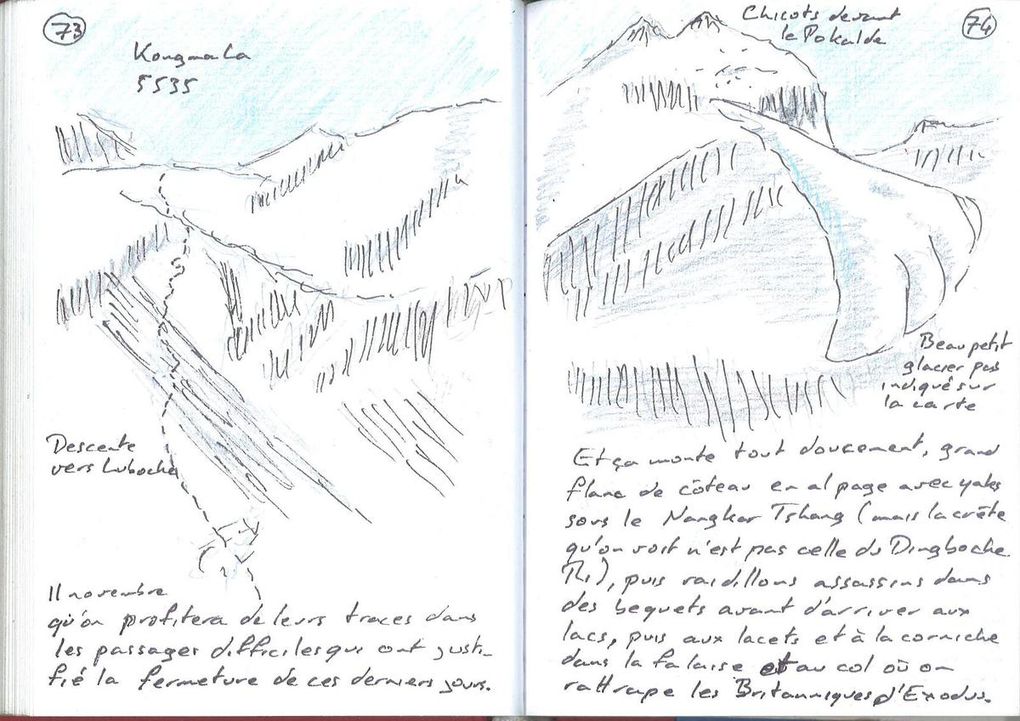 73
Kongma La
5535
Descente
vers Luboche
11 novembre
qu'on profitera de leurs traces dans
les passages difficiles qui ont justi-
fié la fermeture de ces derniers jours.
74
Chicots devant
le Pokalde
Beau petit
glacier pas
indiqué sur
la carte
Et ça monte tout doucement, grand
flanc de côteau en alpage avec yaks
sous le Nangkar Tshang (mais la crête
qu'on voit n'est pas celle du Dingboche
Ri), puis raidillons assassins dans
des bequets avant d'arriver aux
lacs, puis aux lacets et à la corniche
dans la falaise et au col où on
rattrape les Britanniques d'Exodus.